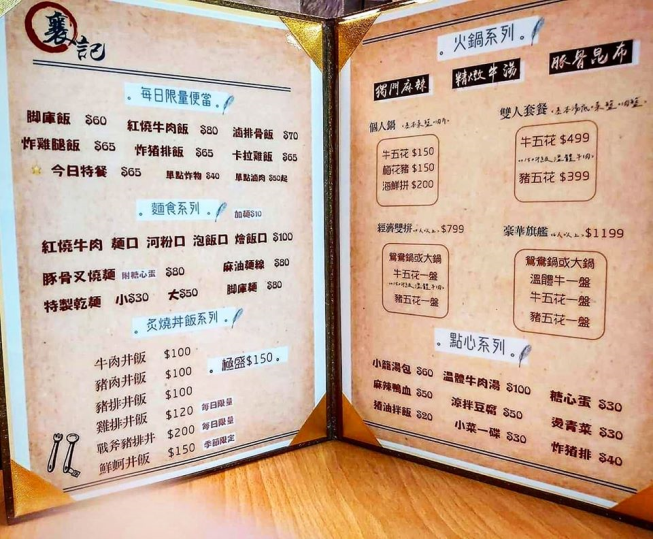 襄記
每日限量便當
腳庫飯 $60 紅燒牛肉飯 $80 滷排骨飯 $70
炸雞腿飯 $65 炸豬排飯 $65 卡拉雞飯 $65
今日特餐 $65 單點炸物 $40 單點滷肉 $50起
麵食系列 加麵$10
紅燒牛肉 麵口 河粉口 泡飯口 燴飯口 $100
豚骨叉燒麵 附糖心蛋 $80 麻油麵線 $80
特製乾麵 小$30 大$50 腳庫麵 $80
炙燒丼飯系列
牛肉丼飯 $100
極盛$150。
豬肉丼飯 $100
豬排丼飯 $100
雞排丼飯 $120 每日限量
戰斧豬排丼 $200 每日限量
鮮蚵丼飯 $150 季節限定
火鍋系列
獨門麻辣 精燉牛湯 豚骨昆布
個人鍋
牛五花 $150
豬 $150
海鮮拼 $200
雙人套餐
牛五花 $499
豬五花 $399
經濟雙拼 $799
鴛鴦鍋或大鍋
牛五花一盤
豬五花一盤
豪華旗艦 $1199
鴛鴦鍋或大鍋
溫體牛一盤
牛五花一盤
豬五花一盤
點心系列
小籠湯包 $60 溫體牛肉湯 $100 糖心蛋 $30
麻辣鴨血 $50 涼拌豆腐 $50 燙青菜 $30
豬油拌飯 $20 小菜一碟 $30 炸豬排 $40